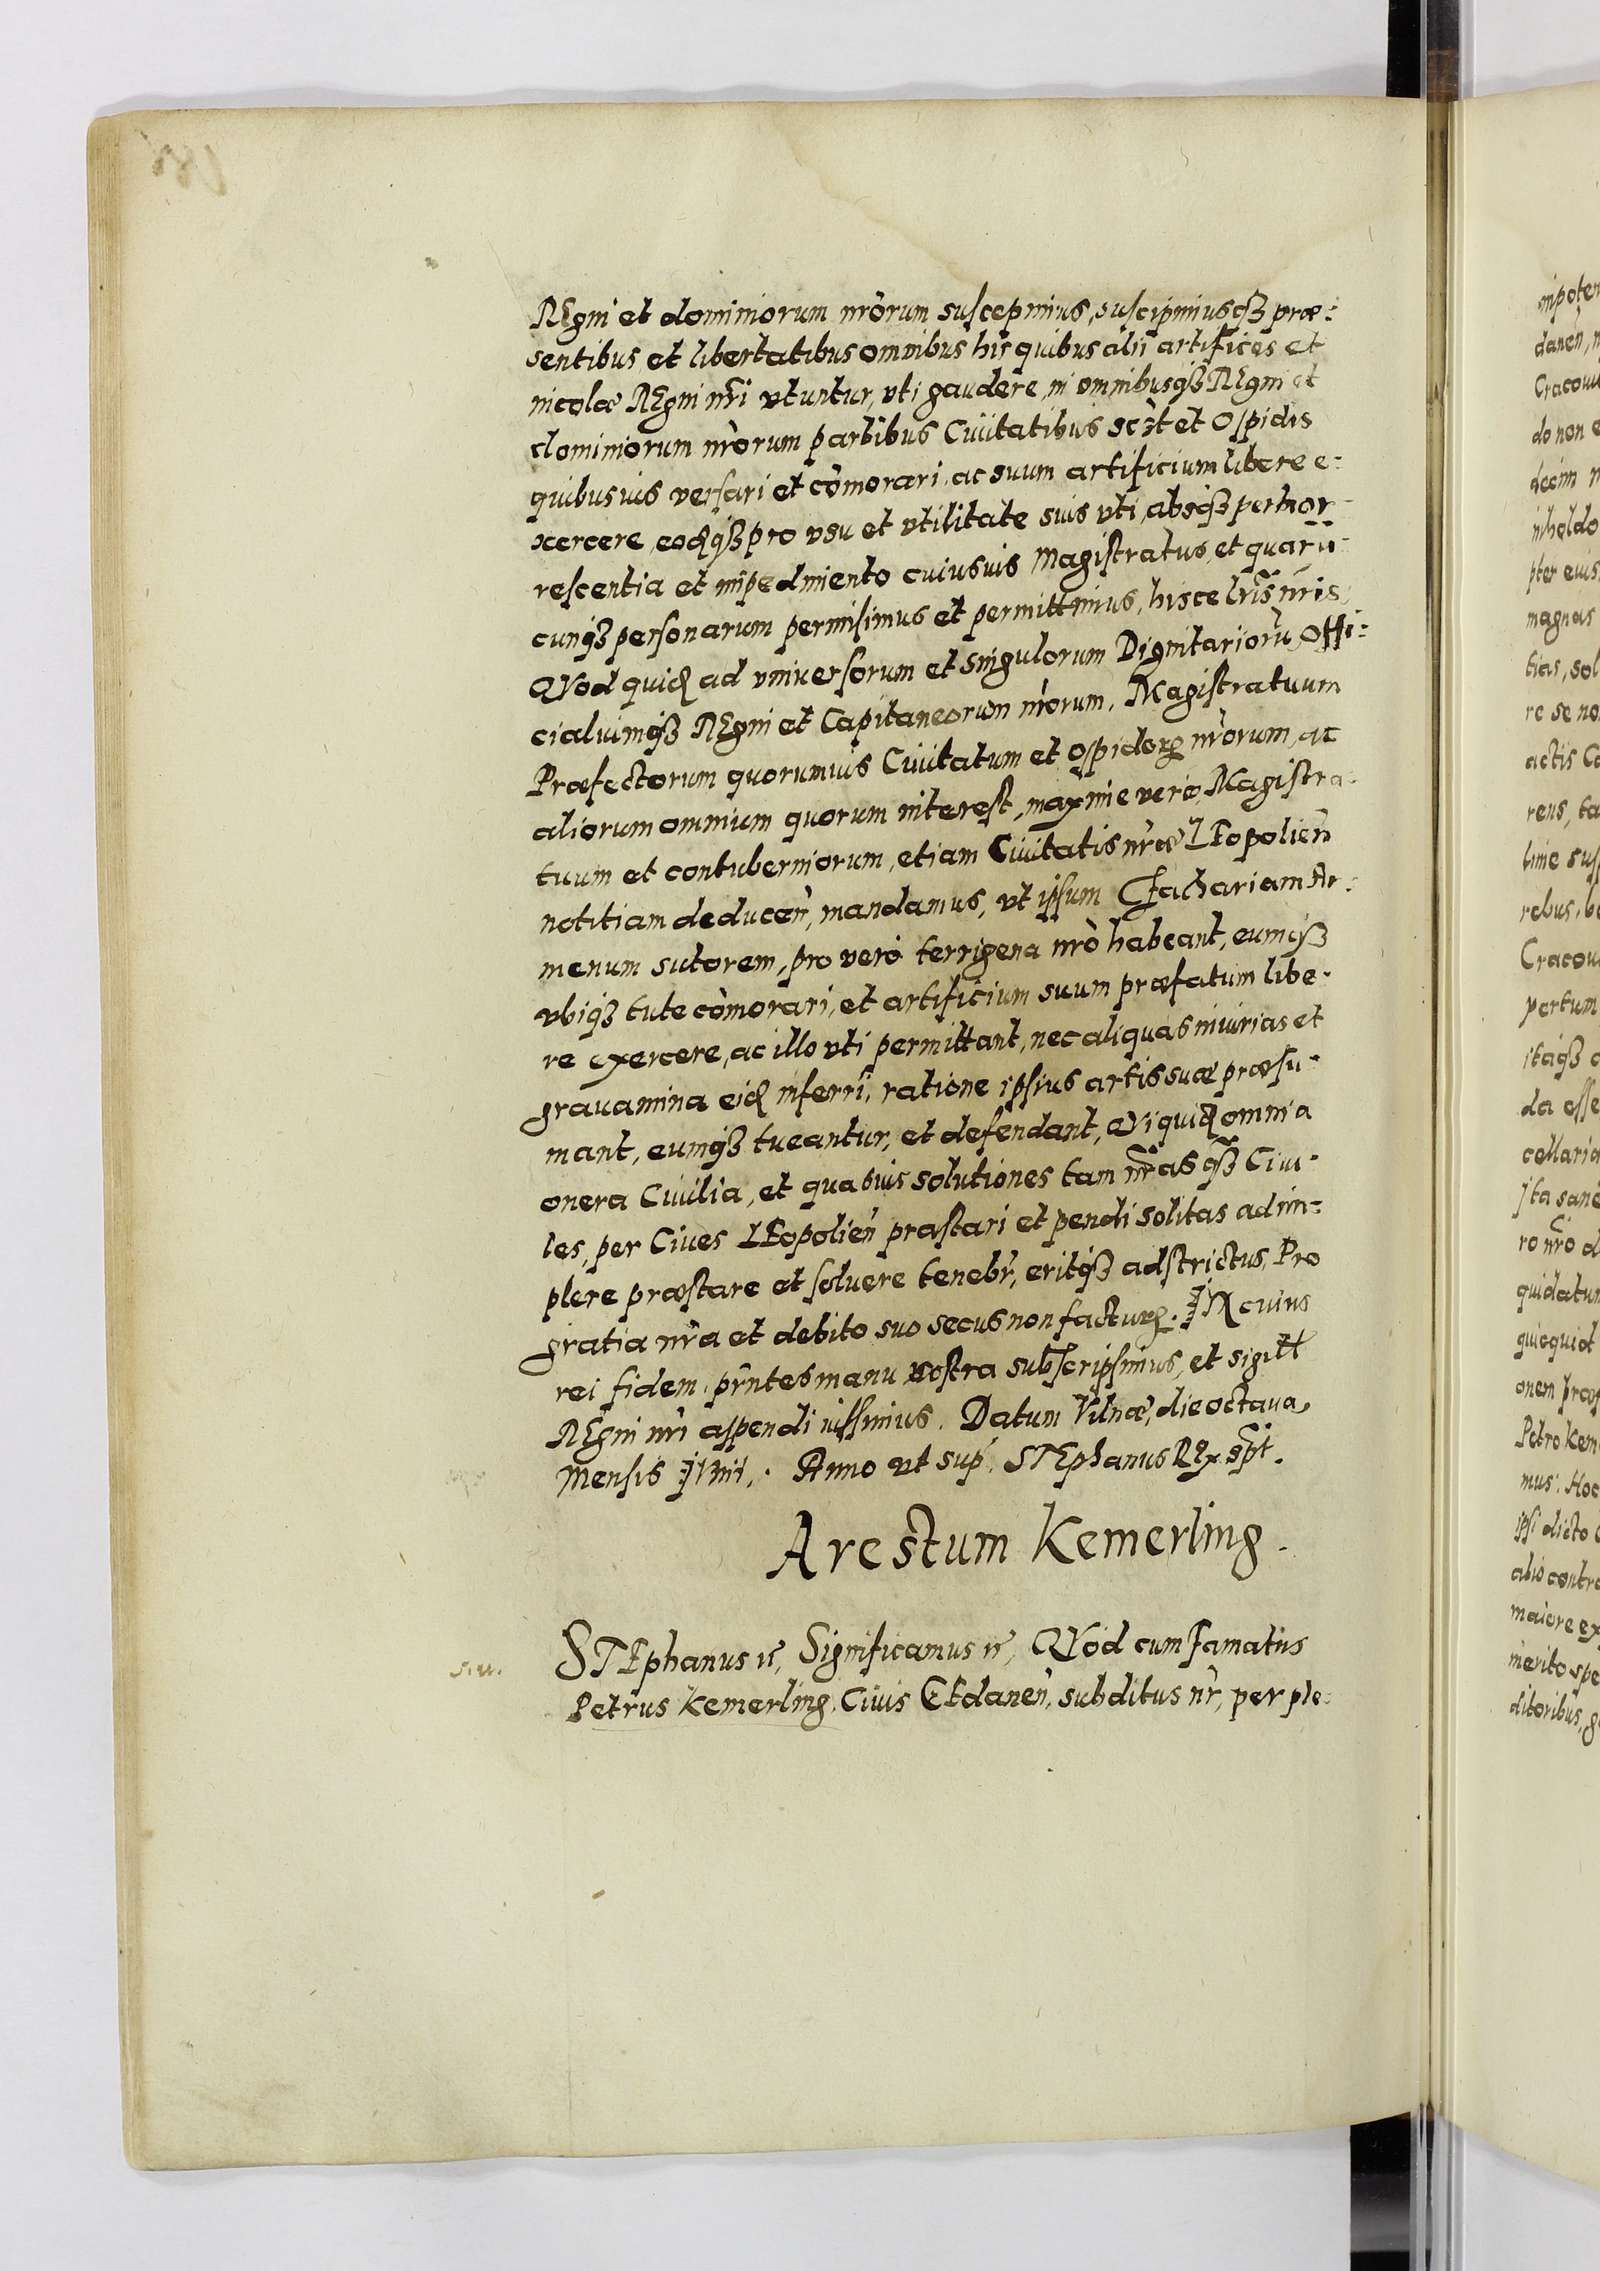 REgni et dominiorum nrorum suscepimus, suscipimusqз præ:
sentibus et libertatibus omnibus his quibus alii artifices et
incolæ REgni nri vtuntur, vti gaudere, in omnibusqз REgni et
dominiorum nrorum partibus Ciuitatibus et Oppidis
quibusuis versari et comorari, ac suum artificium libere e:
xercere, eodqз pro vsu et vtilitate suis vti, absqз perhor:
rescentia et impedimento cuiusuis Magistratus, et quaru:
cunqз personarum permisimus et permittimus, hisce lris nris,
QVod quid ad vniuersorum et singulorum Dignitarioru, Offi:
cialiumqз REgni et Capitaneorum nrorum, Magistratuum
Præfectorum quorumuis Ciuitatum et oppidoꝝ nrorum, ac
aliorum omnium quorum interest, maxime vero, Magistra:
tuum et contuberniorum, etiam Ciuitatis nræ LEopolien
notitiam deducen, mandamus, vt ipsum Zachariam Ar:
menum sutorem, pro vero terrigena nro habeant, eumqз
vbiqз tute comorari, et artificium suum præfatum libe:
re exercere, ac illo vti permittant, nec aliquas iniurias et
grauamina eid inferri, ratione ipsius artis suæ præsu:
mant, eumqз tueantur, et defendant, QVi quid omnia
onera Ciuilia, et quasuis solutiones tam nras qз Ciui:
les, per Ciues LEopolien præstari et pendi solitas adim:
plere præstare et soluere tenebr, eritqз adstrictus, Pro
gratia nra et debito suo secus non facturꝝ. IN cuius
rei fidem, pntes manu nostra subscripsimus, et sigill
REgni nri appendi iussimus. Datum Vilnæ, die octaua,
Mensis Iunii,. Anno vt sup. STEphanus REx spt.
Arestum Kemerling.
STEphanus rc, Significamus rc, QVod cum Famatus
Petrus Kemerling, Ciuis GEdanen, subditus nr, per ple: